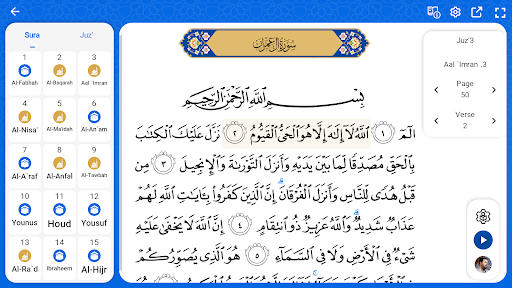 Sura
Juz'
1
2
3
Al-Fatihah
Al-Baqarah
Aal `Imran
4
5
6
Al-Nisa'
Al-Ma'idah
Al-An`am
7
8
9
Al-A`raf
Al-Anfal
Al-Tawbah
10
11
12
Younus
Houd
Yousuf
13
14
15
Al-Ra`d
Ibraheem
Al-Hijr
سُورَةُ آلِ عِمْرَانَ
بِسْمِ اللَّهِ الرَّحْمَٰنِ الرَّحِيمِ
الٓمٓ ١ اللَّهُ لَا إِلَٰهَ إِلَّا هُوَ الْحَيُّ الْقَيُّومُ ٢ نَزَّلَ عَلَيْكَ الْكِتَابَ
بِالْحَقِّ مُصَدِّقًا لِّمَا بَيْنَ يَدَيْهِ وَأَنزَلَ التَّوْرَاةَ وَالْإِنجِيلَ ٣ مِن
قَبْلُ هُدًى لِّلنَّاسِ وَأَنزَلَ الْفُرْقَانَ إِنَّ الَّذِينَ كَفَرُوا بِآيَاتِ اللَّهِ لَهُمْ
عَذَابٌ شَدِيدٌ وَاللَّهُ عَزِيزٌ ذُو انتِقَامٍ ٤ إِنَّ اللَّهَ لَا يَخْفَىٰ عَلَيْهِ
شَيْءٌ فِي الْأَرْضِ وَلَا فِي السَّمَاءِ ٥ هُوَ الَّذِي يُصَوِّرُكُمْ
Juz'3
Aal `Imran .3
Page
50
Verse
2